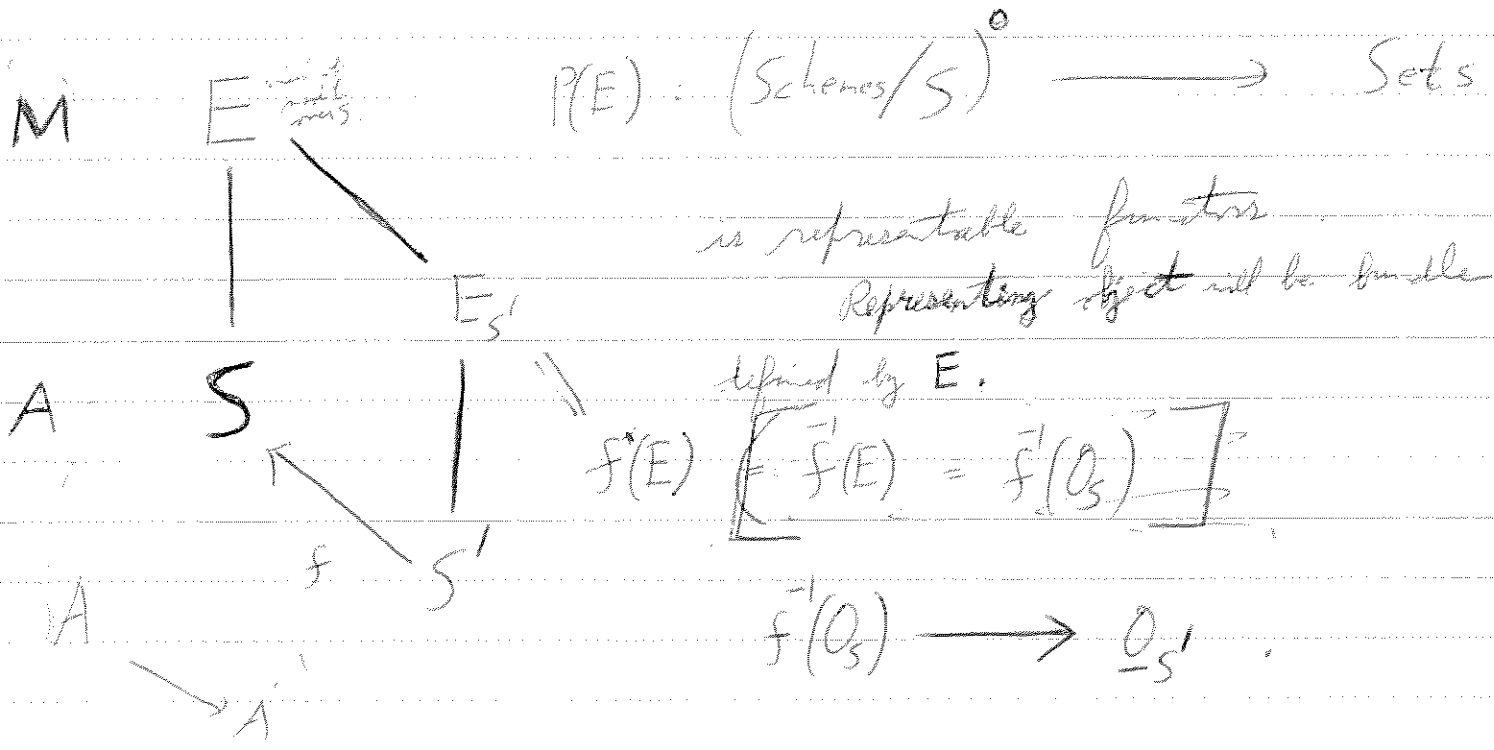 M E P(E) : (Schemes/S)° ⟶ Sets
is representable functors
E_S' Representing object will be bundle
A S defined by E.
f*(E) [(= f⁻¹(E) = f⁻¹(O_S)]
f S'
A f⁻¹(O_S) ⟶ O_S' .
A'